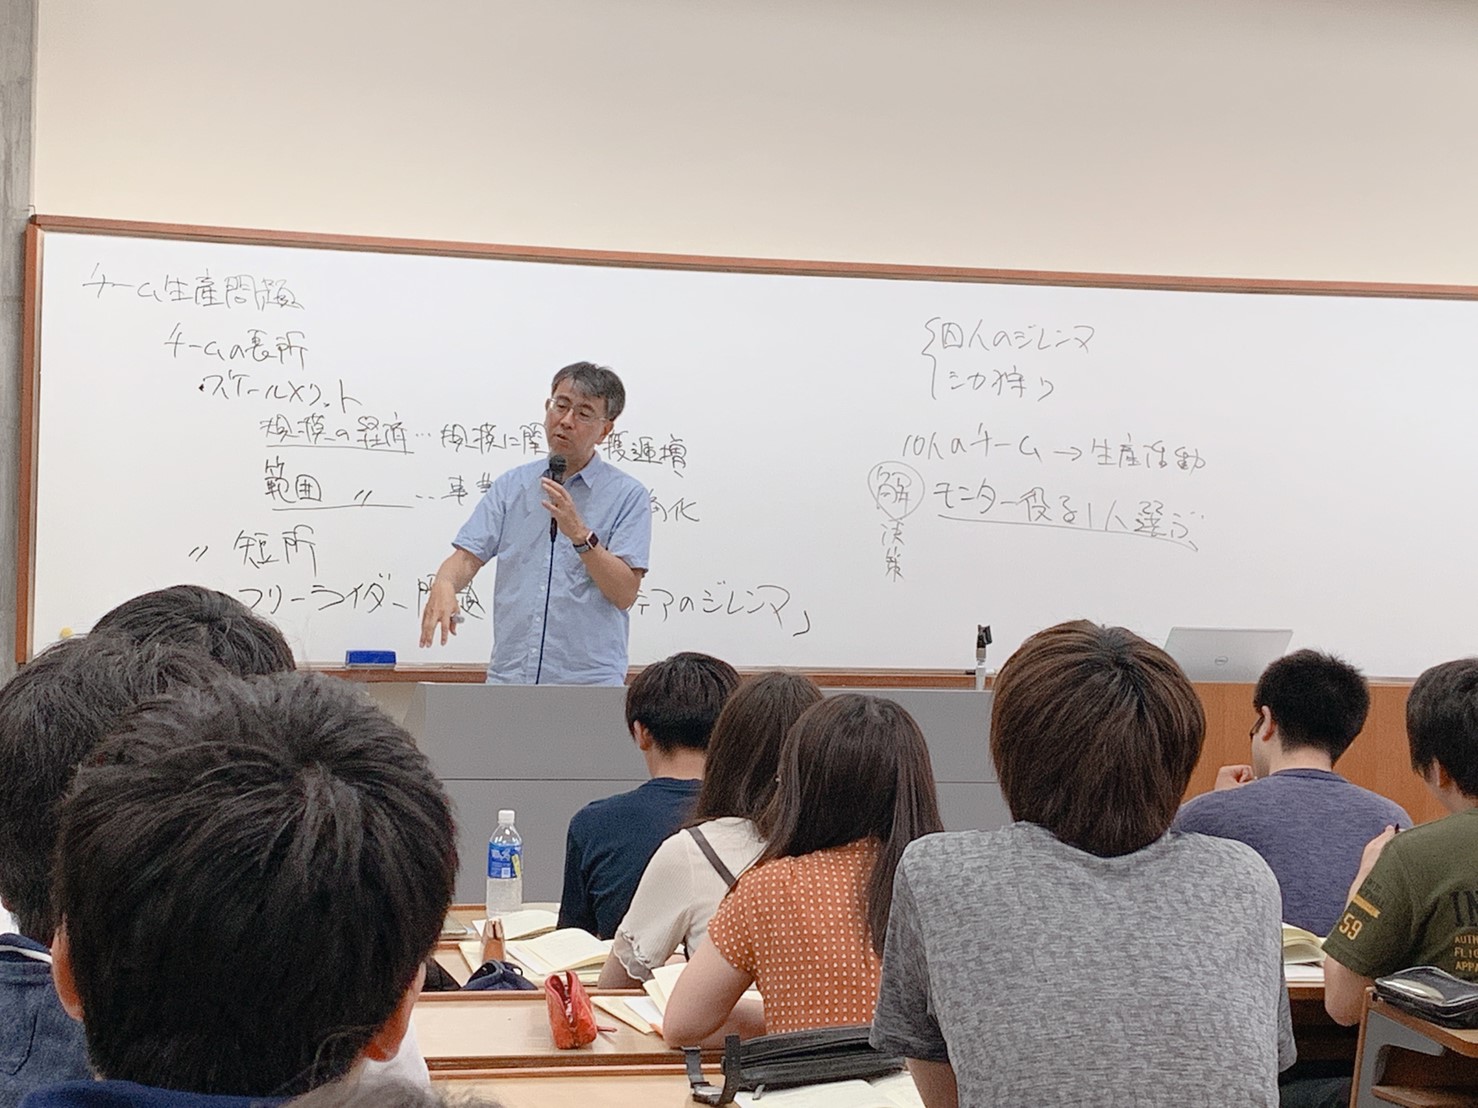 チーム生産問題
チームの長所
・スケールメリット
規模の経済…規模に関 獲逓増
範囲 〃 …事業 効化
〃 短所
フリーライダー問題 ティアのジレンマ」
囚人のジレンマ
シカ狩り
10人のチーム→生産活動
解決策 モニター役を1人選ぶ
DELL
59